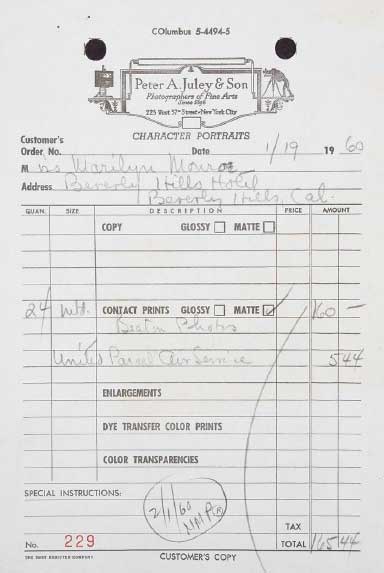 COlumbus 5-4494-5
Peter A. Juley & Son
Photographers of Fine Arts
Since 1896
225 West 57th Street - New York City
CHARACTER PORTRAITS
Customer's
Order No. Date 1/19 1960
Miss Marilyn Monroe
Address Beverly Hills Hotel
Beverly Hills, Cal.
QUAN. SIZE DESCRIPTION PRICE AMOUNT
COPY GLOSSY MATTE
24 mtd. CONTACT PRINTS GLOSSY MATTE ✓ 160 —
Beaton Photos
United Parcel Air Service 5 44
ENLARGEMENTS
DYE TRANSFER COLOR PRINTS
COLOR TRANSPARENCIES
SPECIAL INSTRUCTIONS:
2/1/60
TAX
No. 229 TOTAL 165.44
CUSTOMER'S COPY